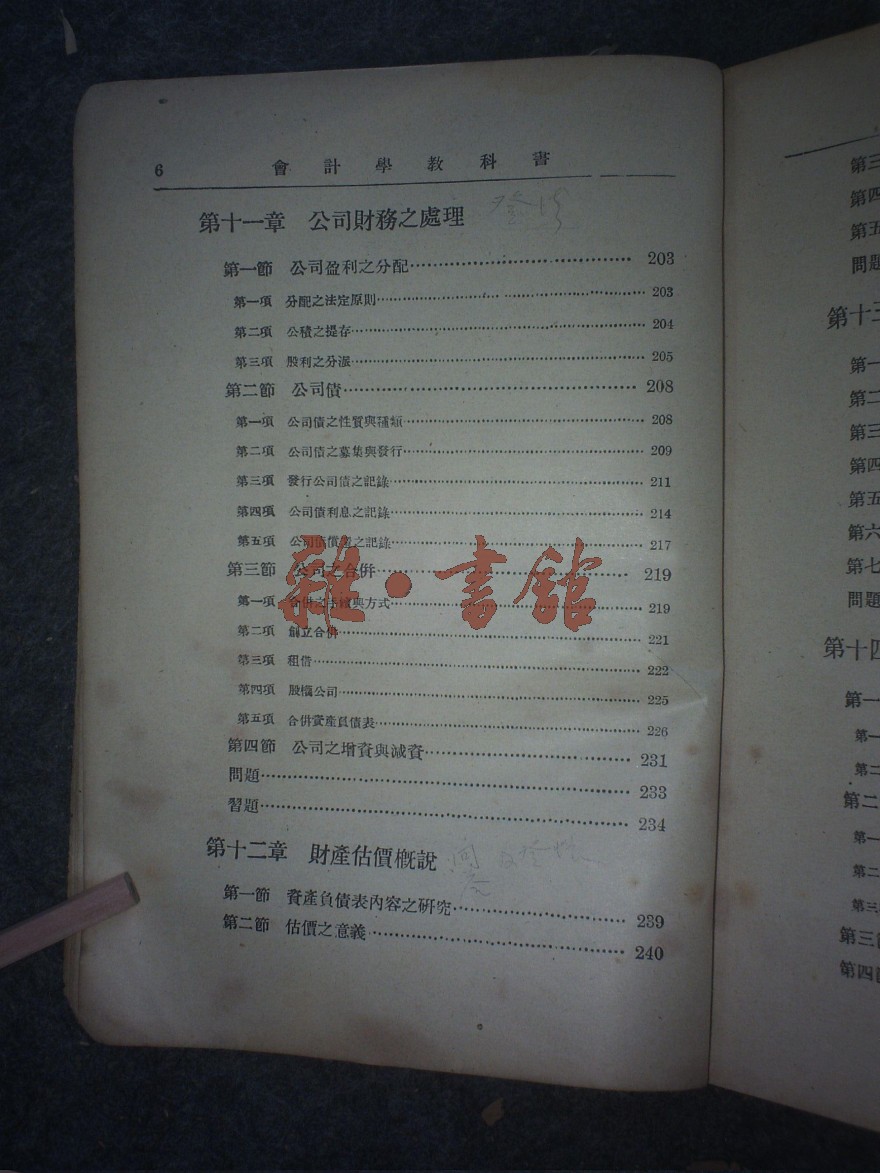 6 會計學教科書
第十一章 公司財務之處理
第一節 公司盈利之分配 203
第一項 分配之法定原則 203
第二項 公積之提存 204
第三項 股利之分派 205
第二節 公司債 208
第一項 公司債之性質與種類 208
第二項 公司債之募集與發行 209
第三項 發行公司債之記錄 211
第四項 公司債利息之記錄 214
第五項 公司債償還之記錄 217
雜·書館
第三節 公司之合併 219
第一項 合併之手續與方式 219
第二項 創立合併 221
第三項 租借 222
第四項 股權公司 225
第五項 合併資產負債表 226
第四節 公司之增資與減資 231
問題 233
習題 234
第十二章 財產估價概說
第一節 資產負債表內容之研究 239
第二節 估價之意義 240
第三
第四
第五
問題
第十三
第一
第二
第三
第四
第五
第六
第七
問題
第十四
第一
第一
第二
第二
第一
第二
第三
第三節
第四節